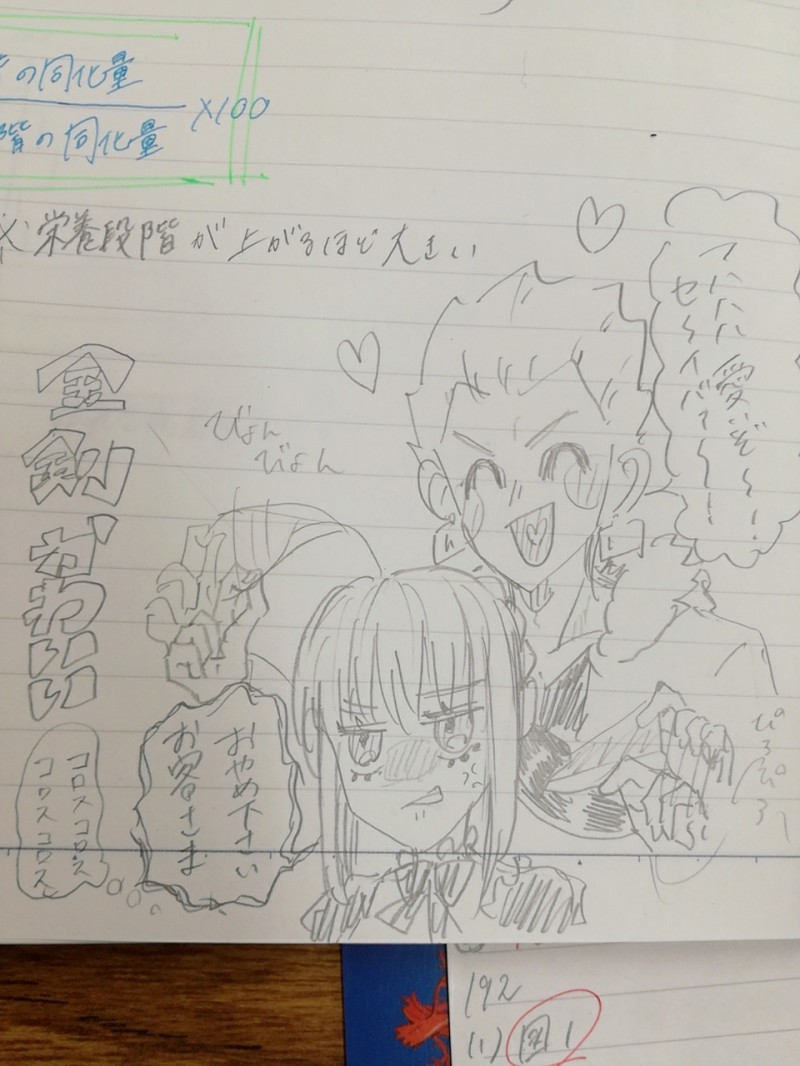 の同化量
階の同化量
×100
※栄養段階が上がるほど大きい
ハハハ愛いぞ〜〜!
セ〜イバ〜〜!
びょん
びょん
金剛かわいい
おやめ下さい
お客さま
コロスコロス
コロスコロス
ぴろぴろ〜
192
(1) 図1